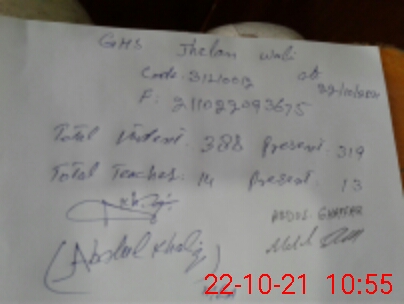 GHS Jhelan wali
Code: 31210012 at 22/10/2021
F: 211022093675
Total Student: 388 present: 319
Total Teaches: 14 present: 13
Kh.
ABDUL GHAFFAR
(Abdul Khaliq
22-10-21 10:55